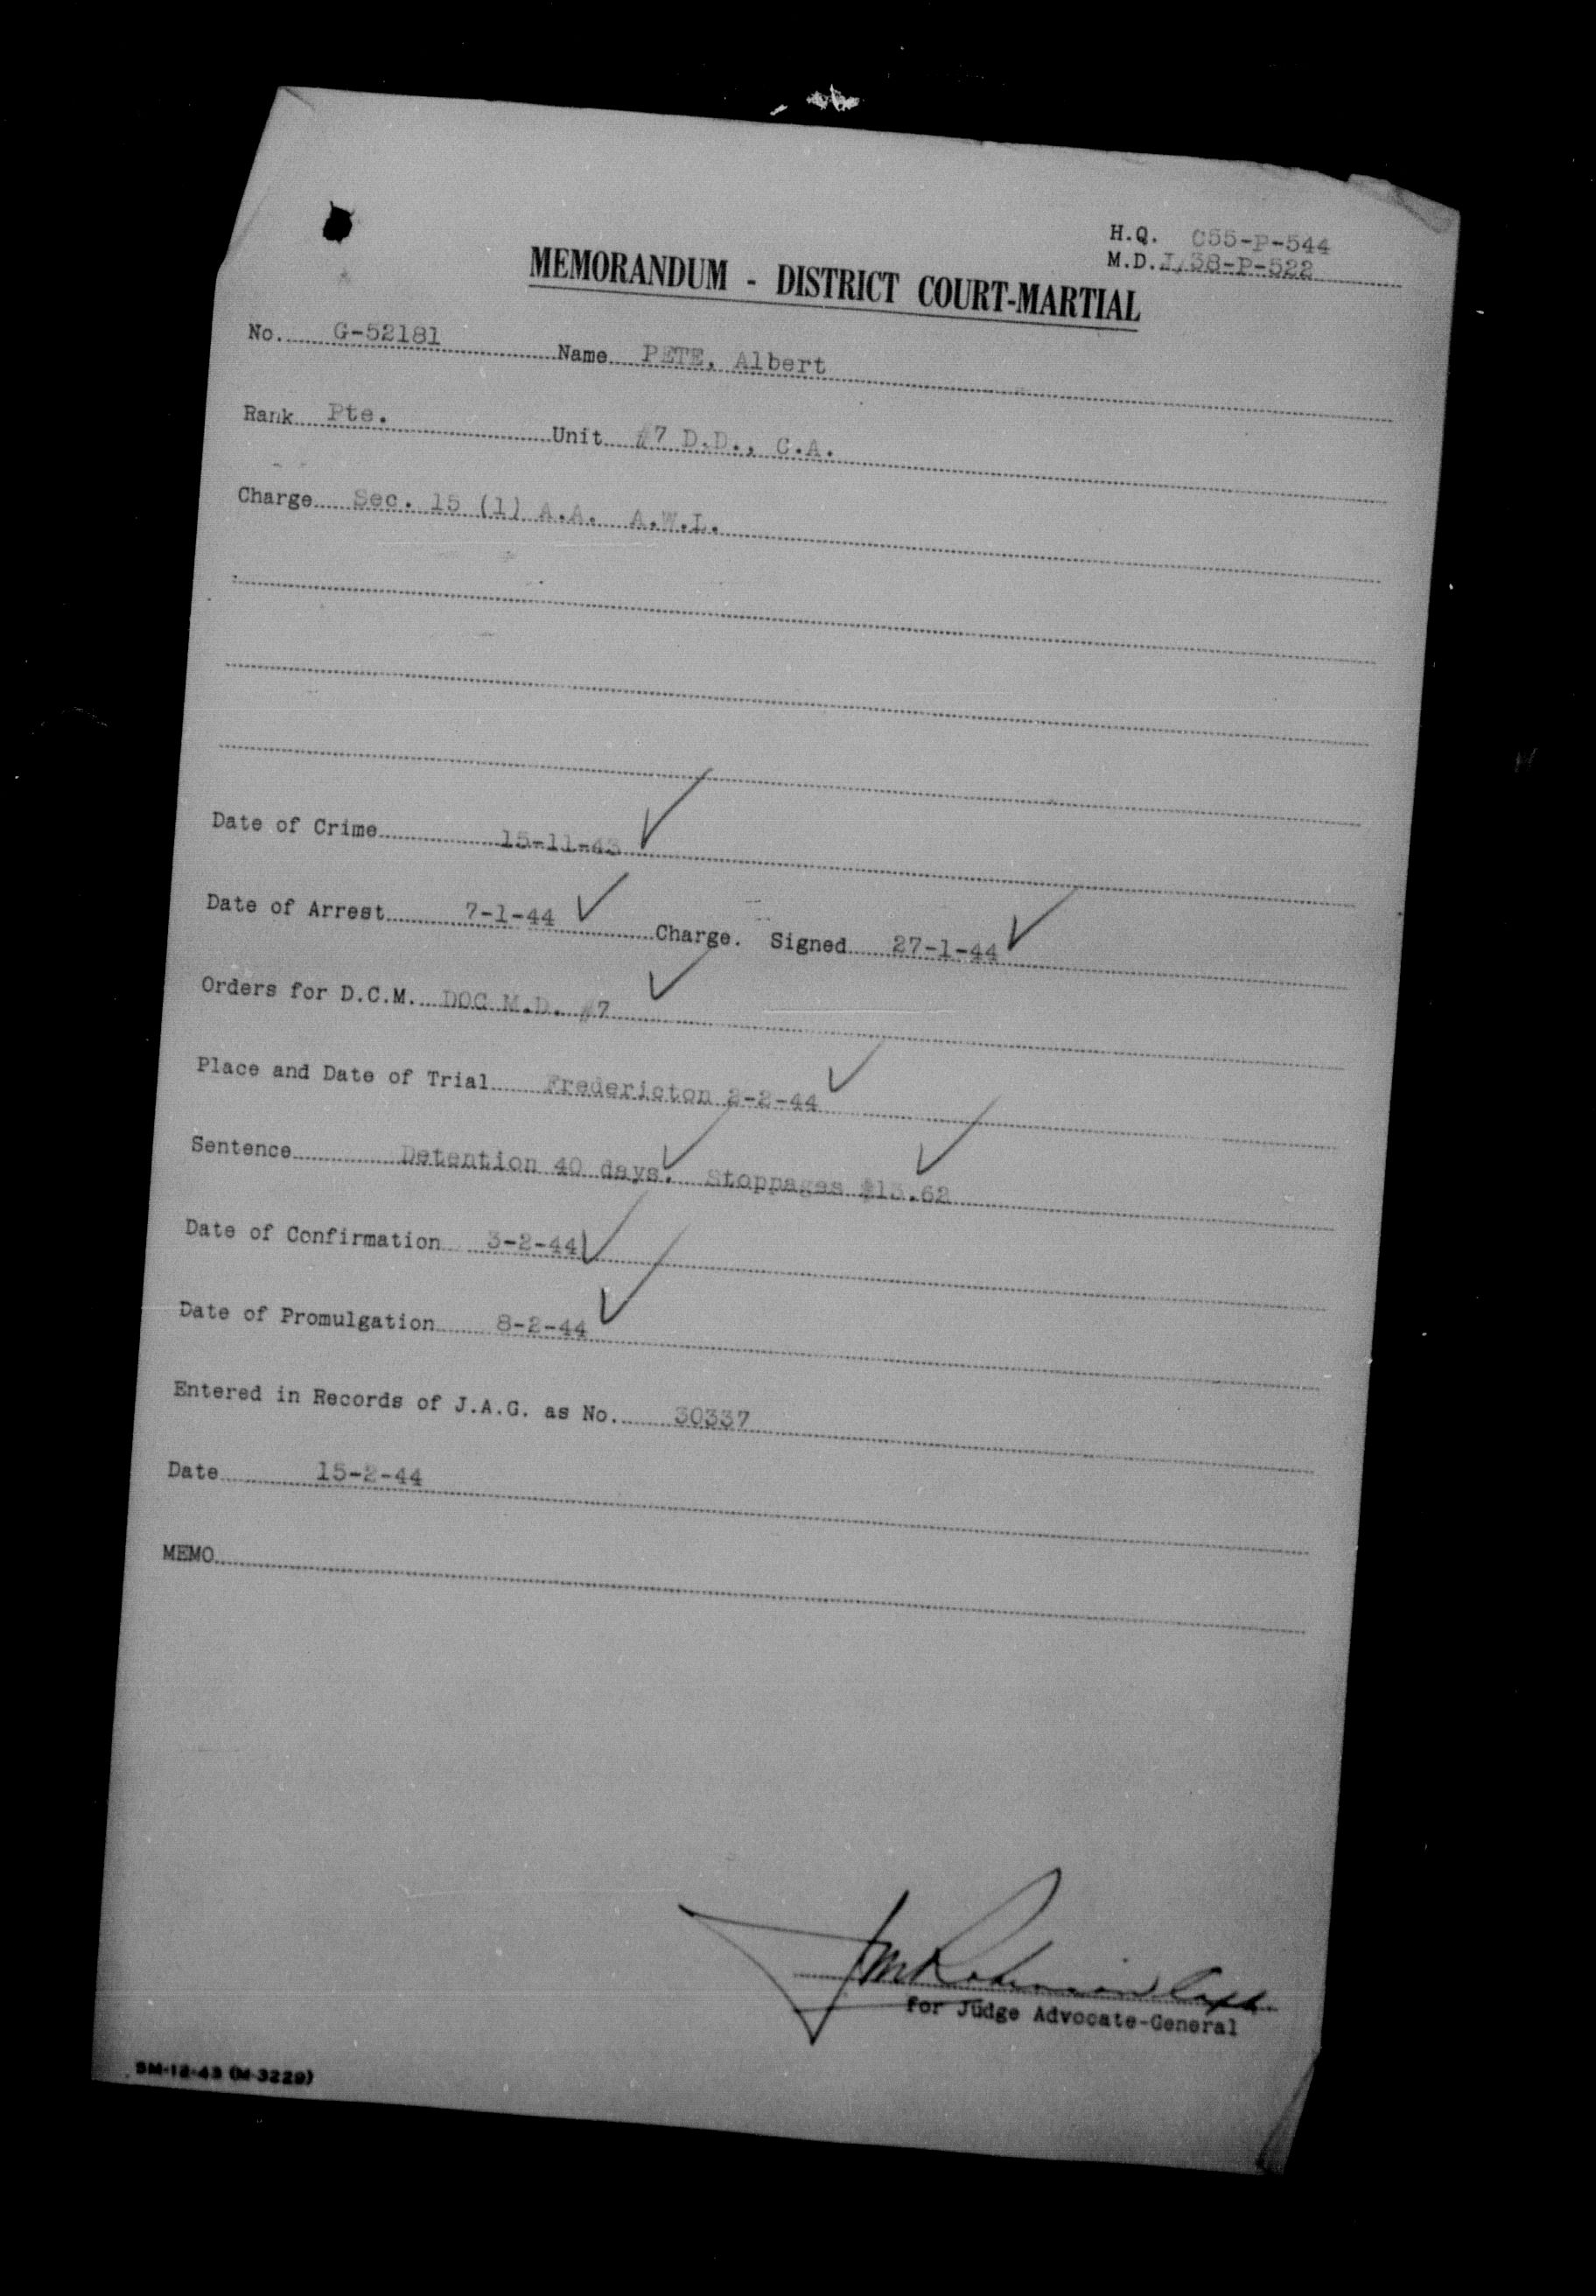 H.Q. C55-P-544
M.D. J/38-P-522
MEMORANDUM - DISTRICT COURT-MARTIAL
No. G-52181 Name PETE, Albert
Rank Pte. Unit #7 D.D., C.A.
Charge Sec. 15 (1) A.A. A.W.L.
Date of Crime 15-11-43
Date of Arrest 7-1-44 Charge. Signed 27-1-44
Orders for D.C.M. DOC M.D. #7
Place and Date of Trial Fredericton 2-2-44
Sentence Detention 40 days. Stoppages $13.62
Date of Confirmation 3-2-44
Date of Promulgation 8-2-44
Entered in Records of J.A.G. as No. 30337
Date 15-2-44
MEMO
Robinson Capt.
for Judge Advocate-General
5M-12-43 (M-3229)